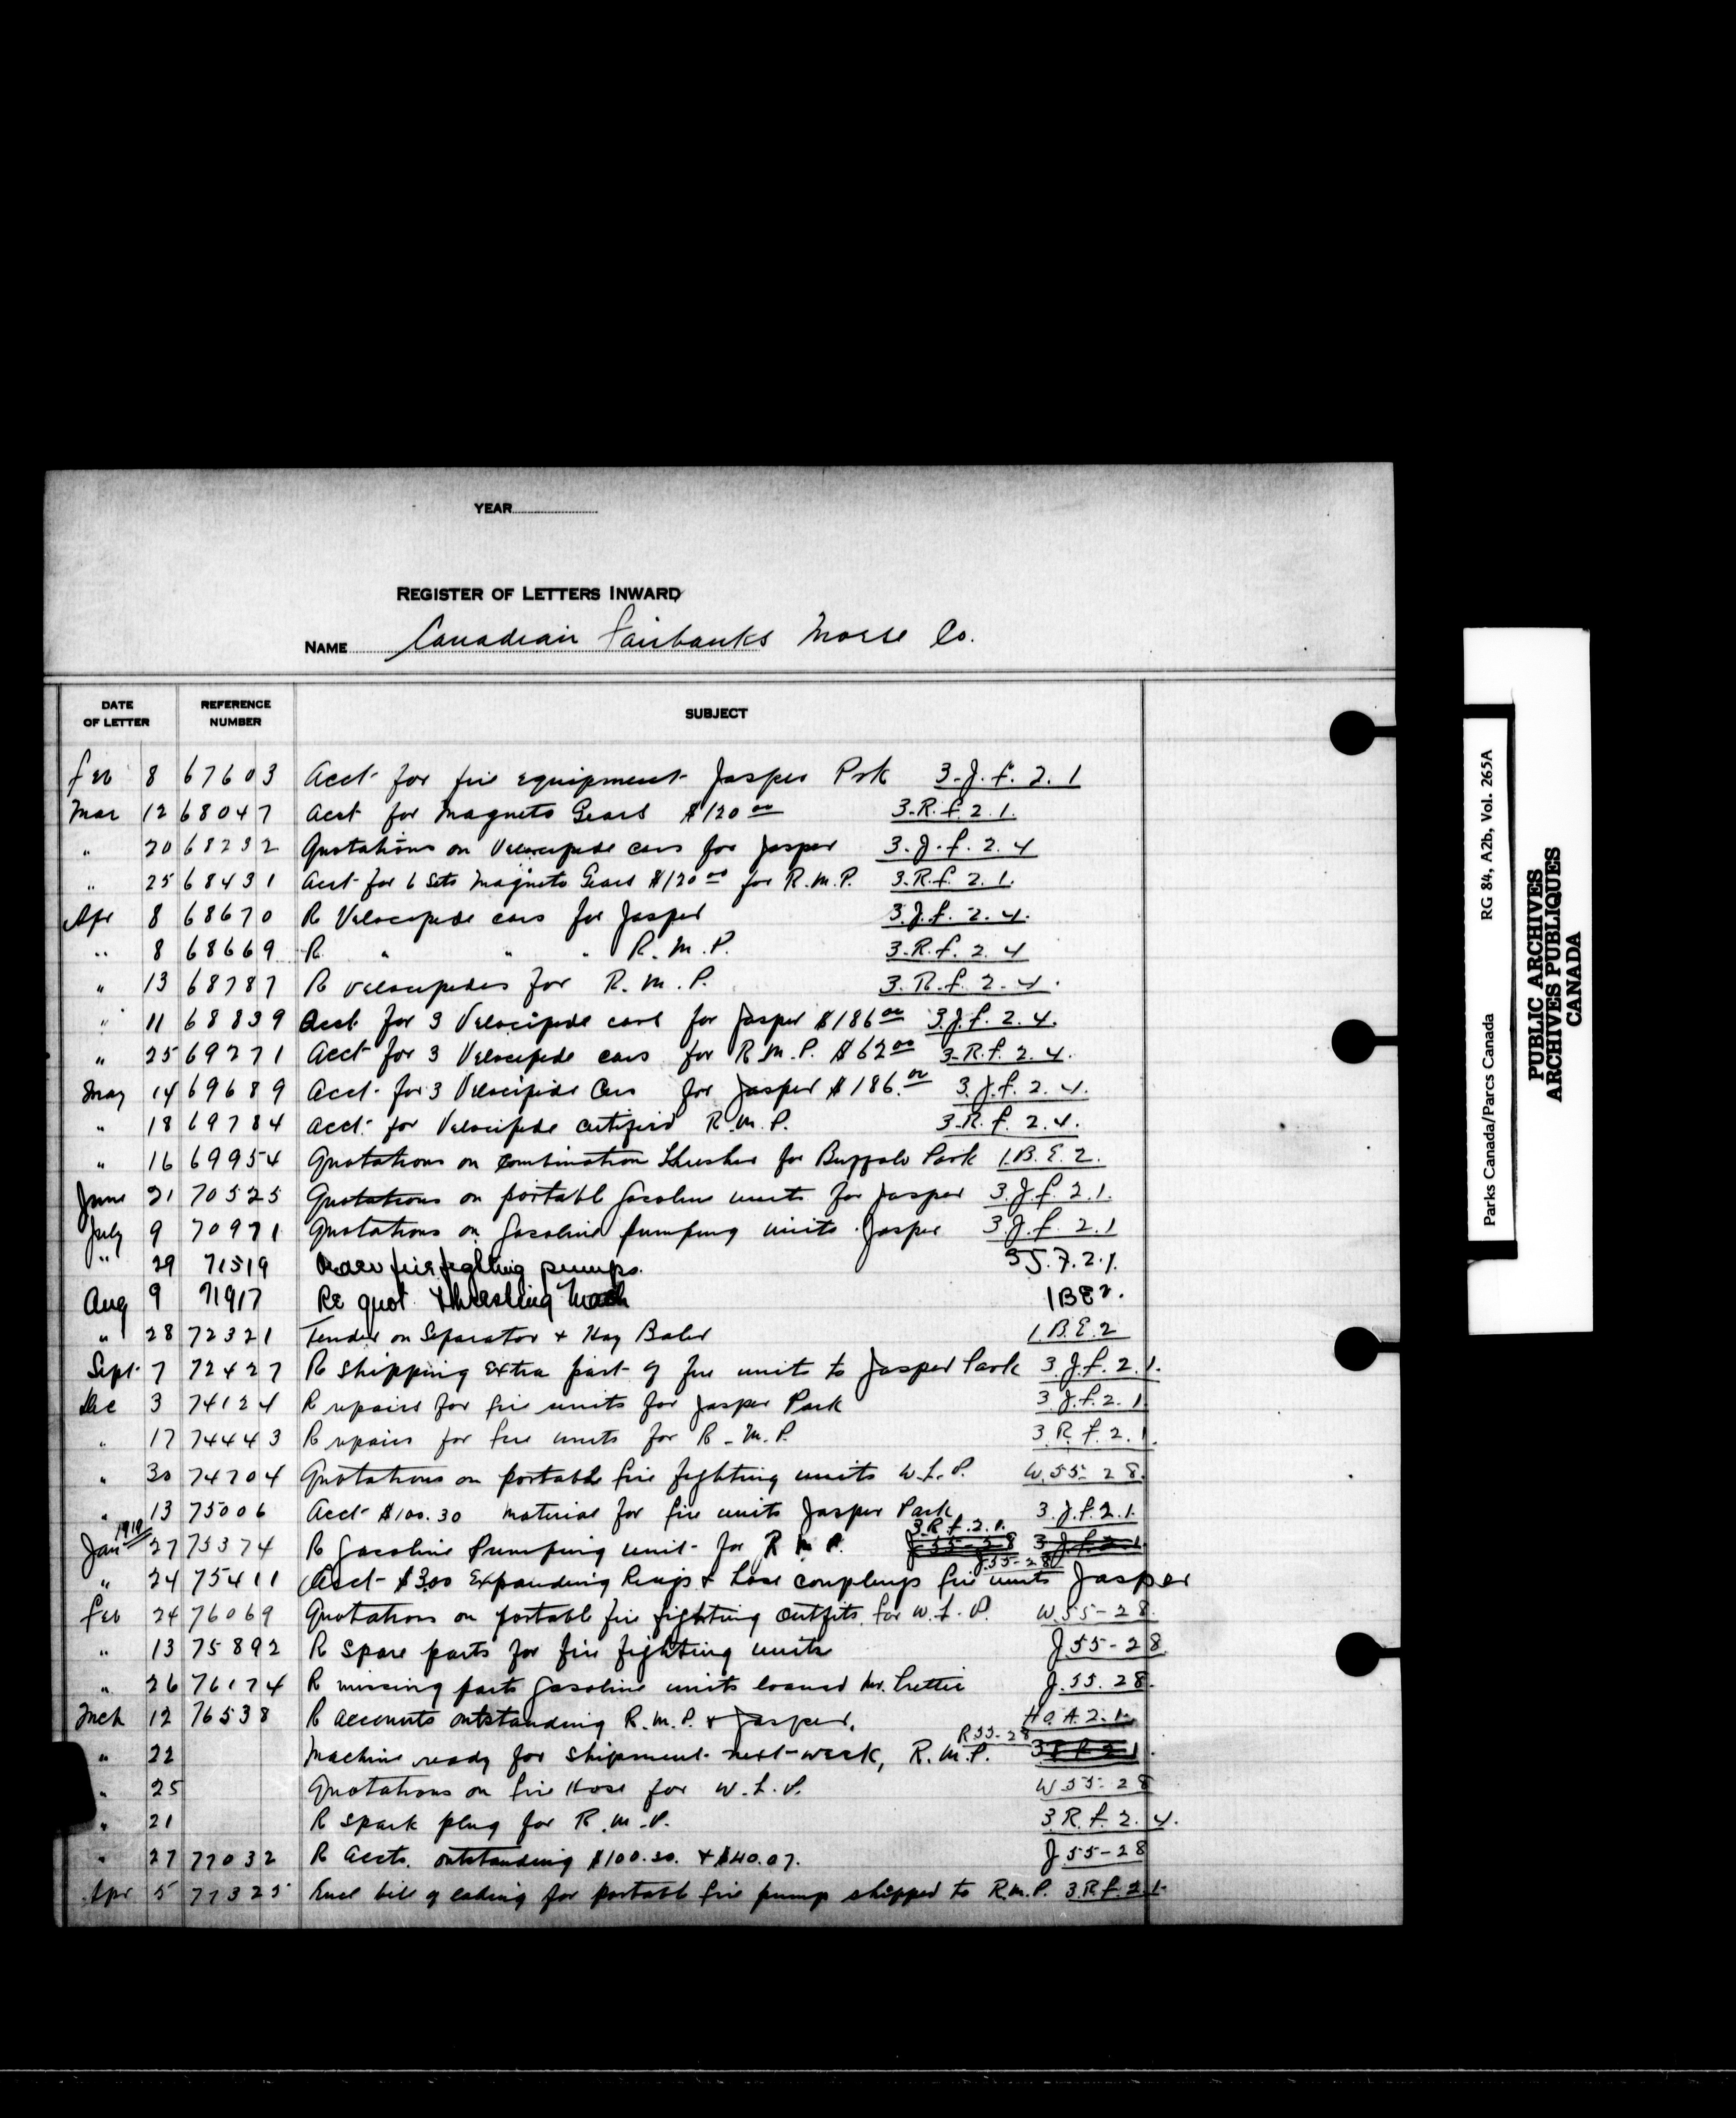 YEAR
REGISTER OF LETTERS INWARD
NAME Canadian Fairbanks Morse Co.
DATE OF LETTER REFERENCE NUMBER SUBJECT
Feb 8 67603 Acct for fire equipment Jasper Prk 3.J.f.2.1
Mar 12 68047 Acct for Magneto Gears $120 00 3.R.f.2.1.
" 20 68232 Quotations on Velocipede cars for Jasper 3.J.f.2.4
" 25 68431 Acct for 6 sets Magneto Gears $120 00 for R.M.P. 3.R.f.2.1.
Apr 8 68670 R Velocipede cars for Jasper 3.J.f.2.4.
" 8 68669 R " " " R.M.P. 3.R.f.2.4
" 13 68787 R velocipedes for R.M.P. 3.R.f.2.4.
" 11 68839 Acct for 3 Velocipede cars for Jasper $186 00 3.J.f.2.4.
" 25 69271 Acct for 3 Velocipede cars for R.M.P. $62 00 3.R.f.2.4.
May 14 69689 Acct for 3 Velocipede Cars for Jasper $186.00 3.J.f.2.4.
" 18 69784 Acct. for Velocipede certified R.M.P. 3.R.f.2.4.
" 16 69954 Quotations on Combination Thresher for Buffalo Park 1.B.E.2.
June 21 70525 Quotations on portable Gasoline units for Jasper 3.J.f.2.1.
July 9 70971 Quotations on Gasoline pumping units Jasper 3.J.f.2.1
" 29 71519 fire fighting pumps. 3J.7.2.1.
Aug 9 71917 Re quot threshing Mach 1BE2.
" 28 72321 Tender on Separator & Hay Baler 1.B.E.2
Sept 7 72427 R shipping Extra part of fire units to Jasper Park 3.J.f.2.1.
Dec 3 74124 R repairs for fire units for Jasper Park 3.J.f.2.1
" 17 74443 R repairs for fire units for R.M.P. 3.R.f.2.1.
" 30 74704 Quotations on portable fire fighting units W.L.P. W.55-28.
" 13 75006 Acct $100.30 Material for fire units Jasper Park 3.J.f.2.1.
1919 3.R.f.2.1.
Jan 27 75374 R Gasoline Pumping unit for R.M.P. J-55-28 3.J.f.2.1.
J.55-28
" 24 75411 Acct $3.00 Expanding Rings & hose couplings fire units Jasper
Feb 24 76069 Quotations on portable fire fighting outfits for W.L.P. W.55-28.
" 13 75892 R Spare parts for fire fighting units J55-28
" 26 76174 R missing parts Gasoline units loaned Mr. J.55.28.
Mch 12 76538 R accounts outstanding R.M.P. & Jasper. Ho.A.2.1.
R55-28
" 22 Machine ready for shipment next week, R.M.P. 3.R.f.2.1.
" 25 Quotations on fire Hose for W.L.P. W55-28
" 21 R Spark plug for R.M.P. 3.R.f.2.4.
" 27 77032 R Accts. outstanding $100.30. & $40.07. J55-28
Apr 5 77325 Encl bill of lading for portable fire pump shipped to R.M.P. 3.R.f.2.1.
Parks Canada/Parcs Canada RG 84, A2b, Vol. 265A
PUBLIC ARCHIVES
ARCHIVES PUBLIQUES
CANADA